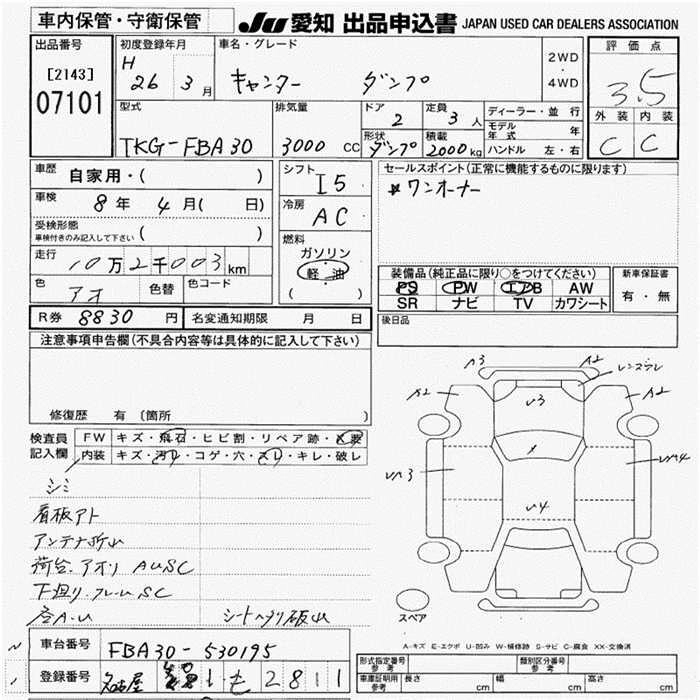 車内保管・守衛保管
JU 愛知 出品申込書 JAPAN USED CAR DEALERS ASSOCIATION
出品番号
[2143]
07101
初度登録年月
H 26 3 月
車名・グレード
キャンター ダンプ
2WD
・
4WD
評価点
3.5
外装 内装
C C
型式
TKG-FBA30
排気量
3000 CC
ドア
2
定員
3 人
形状
ダンプ
積載
2000 kg
ディーラー・並行
モデル年式 年
ハンドル 左・右
車歴
自家用・( )
車検
8 年 4 月( 日)
受検形態
車検付きのみ記入して下さい ( )
走行
10万2千003 km
色
アオ
色替
色コード
シフト
I5
冷房
AC
燃料
ガソリン
軽油
( )
セールスポイント(正常に機能するものに限ります)
*ワンオーナー
装備品(純正品に限り○をつけてください)
PS PW エアB AW
SR ナビ TV カワシート
新車保証書
有・無
R券 8830 円
名変通知期限 月 日
後日品
注意事項申告欄(不具合内容等は具体的に記入して下さい)
修復歴 有 〔箇所
検査員
記入欄
FW キズ・飛石・ヒビ割・リペア跡・X要
内装 キズ・汚れ・コゲ・穴・スレ・キレ・破レ
シミ
看板アト
アンテナ折レ
荷台アオリ AUSC
下廻り.フレームSC
A3
A2
レンズワレ
A2
A2
U3
U4
スペア
A-キズ E-エクボ U-凹み W-補修跡 S-サビ C-腐食 XX-交換済
車台番号
FBA30-530195
登録番号
名古屋
2811
形式指定番号
参考
類別区分番号
参考
車庫証明用
参考
長さ cm
幅 cm
高さ cm